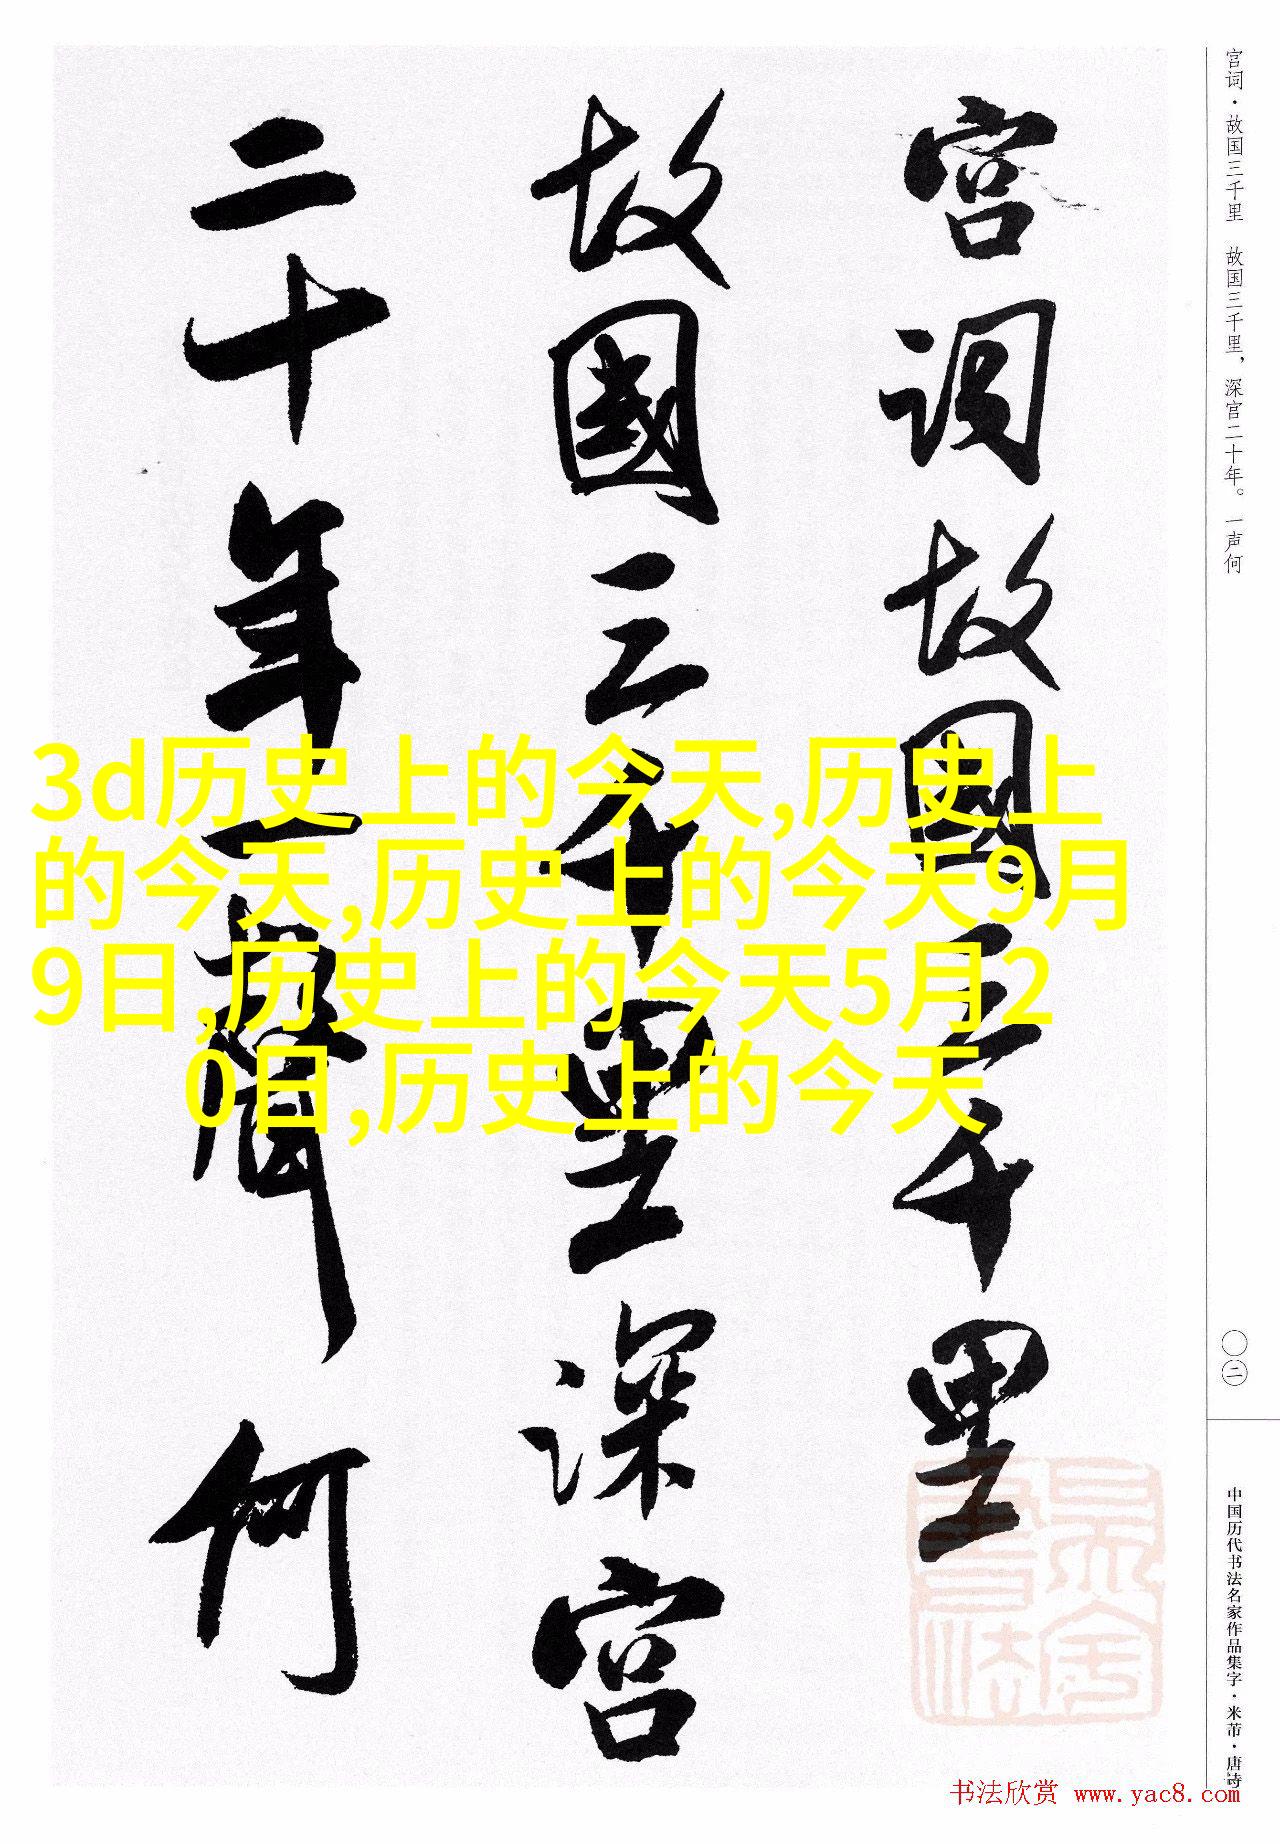 宫词·故国三千里　故国三千里，深宫二十年。一声何
宫词故國三千里
故國三千里深宫
二十年一聲何
3d历史上的今天,历史上
的今天,历史上的今天9月
9日,历史上的今天5月2
0日,历史上的今天
〇二
中国历代书法名家作品集字·米芾·唐诗
书法欣赏 www.yac8.com